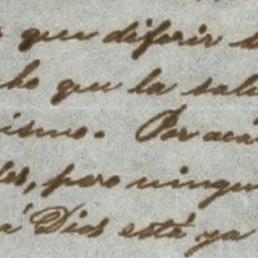 que diferir
que la salu
ismo. Por acá
les, pero ningu
á Dios está ya